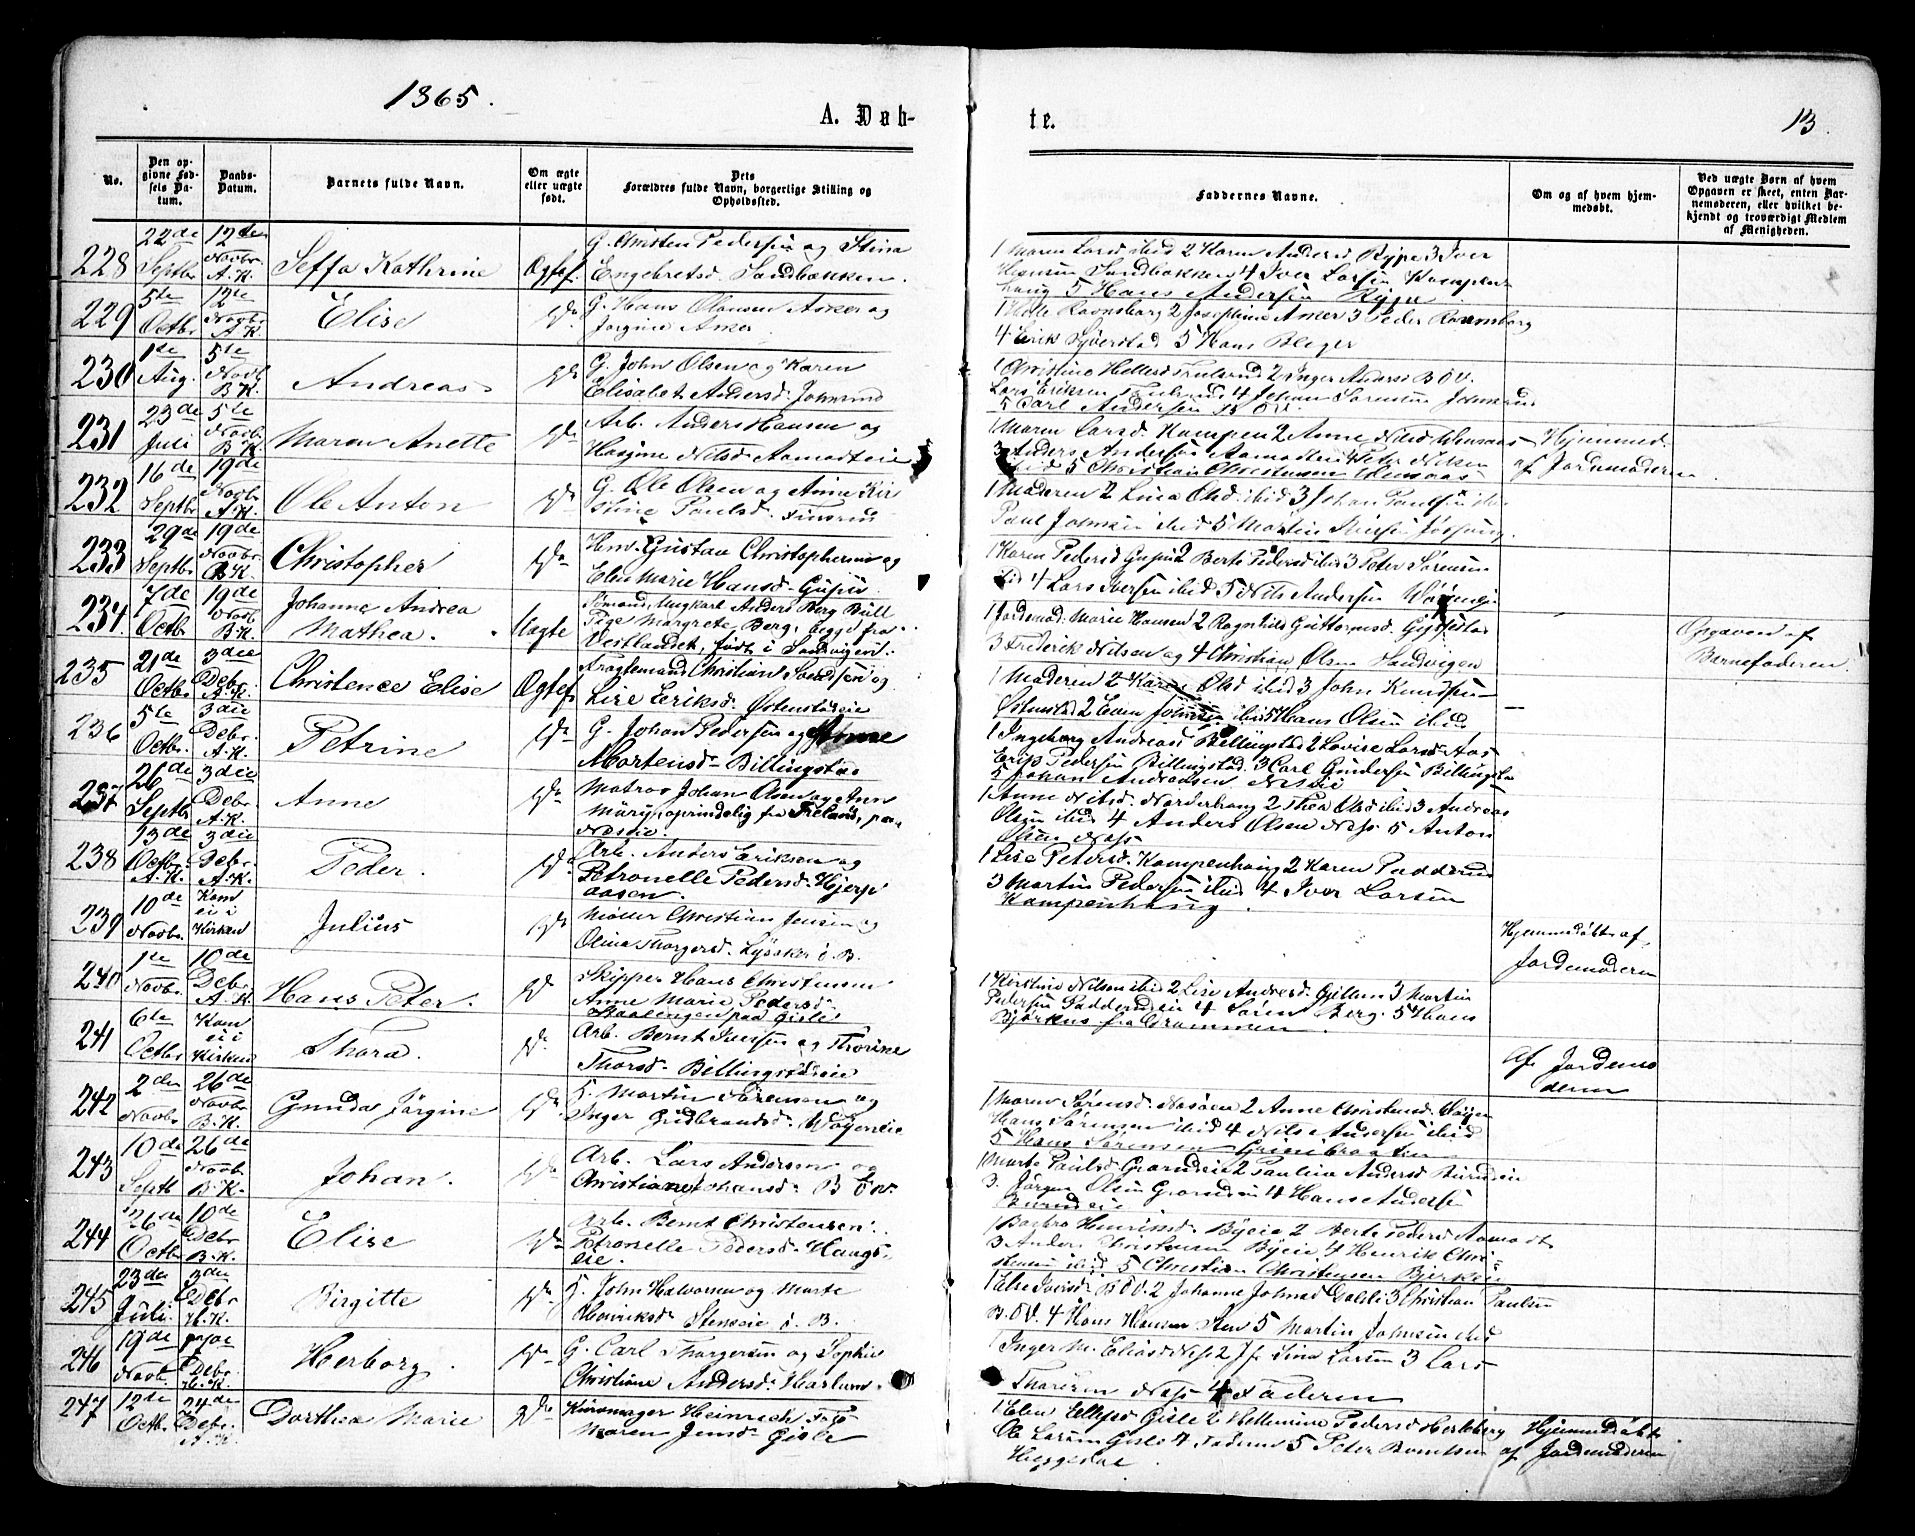 1865.
A. Døb-
te.
13.
No.
Den op-
givne Fød-
sels Da-
tum.
Daabs-
Datum.
Barnets fulde Navn.
Om ægte
eller uægte
født.
Dets
Forældres fulde Navn, borgerlige Stilling og
Opholdssted.
Faddernes Navne.
Om og af hvem hjem-
medøbt.
Ved uægte Børn af hvem
Opgaven er skeet, enten Bar-
nemoderen, eller hvilket be-
kjendt og troværdigt Medlem
af Menigheden.
228
22de
Septbr
12te
Novbr.
A. K.
Seffa Kathrine
Ægtef.
G. Christen Pedersen og Stina
Engebretsd. Sandbakken.
1 Maren Larsd ibid 2 Karen Andersd Rype 3 Iver
Hansen Sandbakken 4 Iver Larsen Kampen
haug 5 Hans Andersen Rype
229
5te
Octbr
12te
Novbr
A. K
Elise
Do
G. Hans Olausen Asker og
Jørgine Asker
Ravnsborg 2 Josephine Asker 3 Peder Ravnsborg
4 Erik Syverstad 5 Hans Bleger
230
1te
Aug.
5te
Novb
B K.
Andreas
Do
G. John Olsen og Karen
Elisabet Andersd. Johnsrud
1 Christine 2 Inger Andersd B Ø V.
Lars Eriksen 4 Johan Sørensen Johnsrud
5 Carl Andersen B. ØV.
231
23de
Juli
5te
Novb.
B K.
Maren Anette
Do
Arb. Anders Hansen og
Nilsd Aamodteie
1 Maren Larsd. Kampen 2 Anne Nilsd
3 Anders Andersen 4 Peter Nilsen
ibid 5 Christian Christensen
Hjemmed.
af Jordemoderen
232
16de
Septbr
19de
Novbr
A. K
Ole Anton
Do
G. Ole Olsen og Anne Kir
stine Paulsd. Finsrud
1 Moderen 2 Lina Olsd. ibid 3 Johan Paulsen ibid
Paul Johnsen ibid 5 Martin
233
29de
Septbr
19de
Novbr
B K.
Christopher
Do
Hmd. Gustav Christophersen og
Elen Marie Hansd. Gupu
1 Karen Pedersd Gupu 2 Berte Pedersd ibid 3 Peter Sørensen
ibid 4 Lars Iversen ibid 5 Nils Andersen
234.
7de
Octbr
19de
Novb
B K.
Johanne Andrea
Mathea.
Uægte
Sømand, Ungkarl Anders Berg Bull
Pige Margrete Berg, begge fra
Vestlandet, født i Sandvigen.
1 Jordemod. Marie Hansen 2 Ragnhild Guttormsd. Gjessestad
3 Frederik Nilsen og 4 Christian Olsen Sandvigen
Opgaven af
Barnefaderen.
235
21de
Octbr
3die
Debr.
A. K
Christence Elise
Ægtef
Christian og
Lise Eriksd. Østenstadeie
1 Moderen 2 Karen Olsd ibid 3 John Knudsen
Østenstad 2 Even Johnsen ibid 5 Hans Olsen ibid
236
5te
Octbr.
3die
Debr.
A. K.
Petrine
Do
G. Johan Pedersen og Anne
Mortensd. Billingstad
1 Ingeborg Andreasd Billingstad 2 Lovise Larsd. Aas
Erik Pedersen Billingstad. 3 Karl Gundersen Billingstad
5 Johan Andreasen Neseie
237
26de
Septbr
3die
Debr.
A. K.
Anne
Do
Matros Johan Olsen og Ann
Mary, oprindelig fra Irland, paa
Neseie.
1 Anne Nilsd. Norderhaug 2 Thea Olsd ibid 3 Andreas
Olsen ibid 4 Anders Olsen Næss 5 Anton
Olsen Næss
238
13de
Octbr.
A. K.
3die
Debr.
A. K.
Peder.
Do
Arb. Anders Eriksen og
Petronelle Pedersd. Hjerp
aasen.
1 Lise Petersd. Kampenhaug 2 Karen Padderud
3 Martin Pedersen ibid 4 Iver Larsen
Kampenhaug.
239
10de
Novbr.
Kom
ei i
Kirken
Julius
Do
Møller Christian Jensen og
Olina Thorgersd. Lysaker i B.
Hjemmedøbt af
Jordemoderen
240
1te
Novbr.
10de
Debr
A. K.
Hans Peter.
Do
Skipper Hans Christensen
Anne Marie Pedersd.
Staalengen paa Gisle
1 Kirstine Nilsen ibid 2 Lise Andresd. Gjellum 3 Martin
Pedersen Padderudeie 4 Søren Berg. 5 Hans
Bjerknes fra Drammen.
241
6te
Octbr
Kom
ei i
Kirken
Thora.
Do
Arb. Bernt Iversen og Thorine
Thorsd. Billingstadeie
Af Jordemo
deren
242
2den
Novbr.
26de
Novbr
B. K.
Gunda Jørgine
Do
H. Martin Sørensen og
Inger Gudbrandsd.
1 Maren Sørensd. Nesøen 2 Anne Christensd.
Hans Sørensen ibid 4 Nils Andersen ibid
5 Hans Sørensen Grinibraaten
243
10de
Septb
26de
Novb.
B. K.
Johan.
Do
Arb. Lars Andersen og
Christiane Johansd. B ØV.
1 Marte Paulsd Granseie 2 Paulina Andersd Burudeie
3. Jørgen Olsen 4 Hans Andersen
Burudeie
244
26de
Octbr
10de
Debr
B. K.
Elise
Do
Arb. Bernt Christensen.
Petronelle Pedersd. Haugs
eie.
1 Barbro Henriksd. Byeie 2 Berte Pedersd Aamodt
3 Anders Christensen Byeie 4 Henrik Chri-
stensen ibid 5 Christian Christensen Bjerkeeie
245
23de
Juli.
3die
Debr
H. K.
Birgitte
Do
H. John Halvorsen og Marte
Henriksd. Stenseie i B.
1 Else Iversd. B ØV. 2 Johanne Johnsd 3 Christian Paulsen
B. ØV. 4 Hans Hansen Sten 5 Martin Johnsen ibid
246
19de
Novb.
Debr.
H. K.
Herborg.
Do
G. Carl Thorgersen og Sophie
Christiane Andersd. Haslum.
1 Inger M. Eliasd Næs 2 Jfr Sina Larsen 3 Lars
Thoresen Næss 4 Faderen
247
12de
Octbr.
24de
Debr.
A. K
Dorthea Marie
Do
Heinrich
Maren Jensd. Gisle
1 Elen Ellefsd Gisle 2 Hellemine Pedersd Herleberg
Ole Larsen Gisle 4 Faderen 5 Peter Berntsen
Heggedal.
Hjemmedøbt
af Jordemoderen